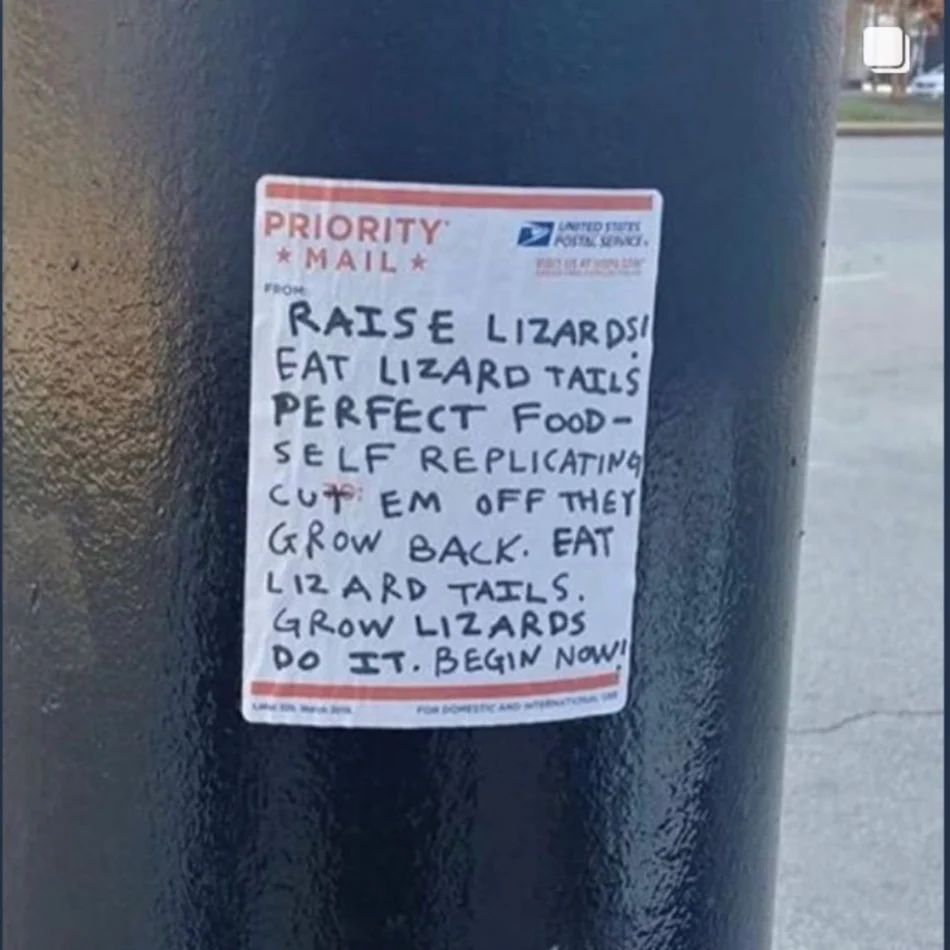 PRIORITY
★ MAIL ★
UNITED STATES
POSTAL SERVICE
FROM:
RAISE LIZARDS!
EAT LIZARD TAILS
PERFECT FOOD-
SELF REPLICATING
TO:
CUT EM OFF THEY
GROW BACK. EAT
LIZARD TAILS.
GROW LIZARDS
DO IT. BEGIN NOW!
FOR DOMESTIC AND INTERNATIONAL USE